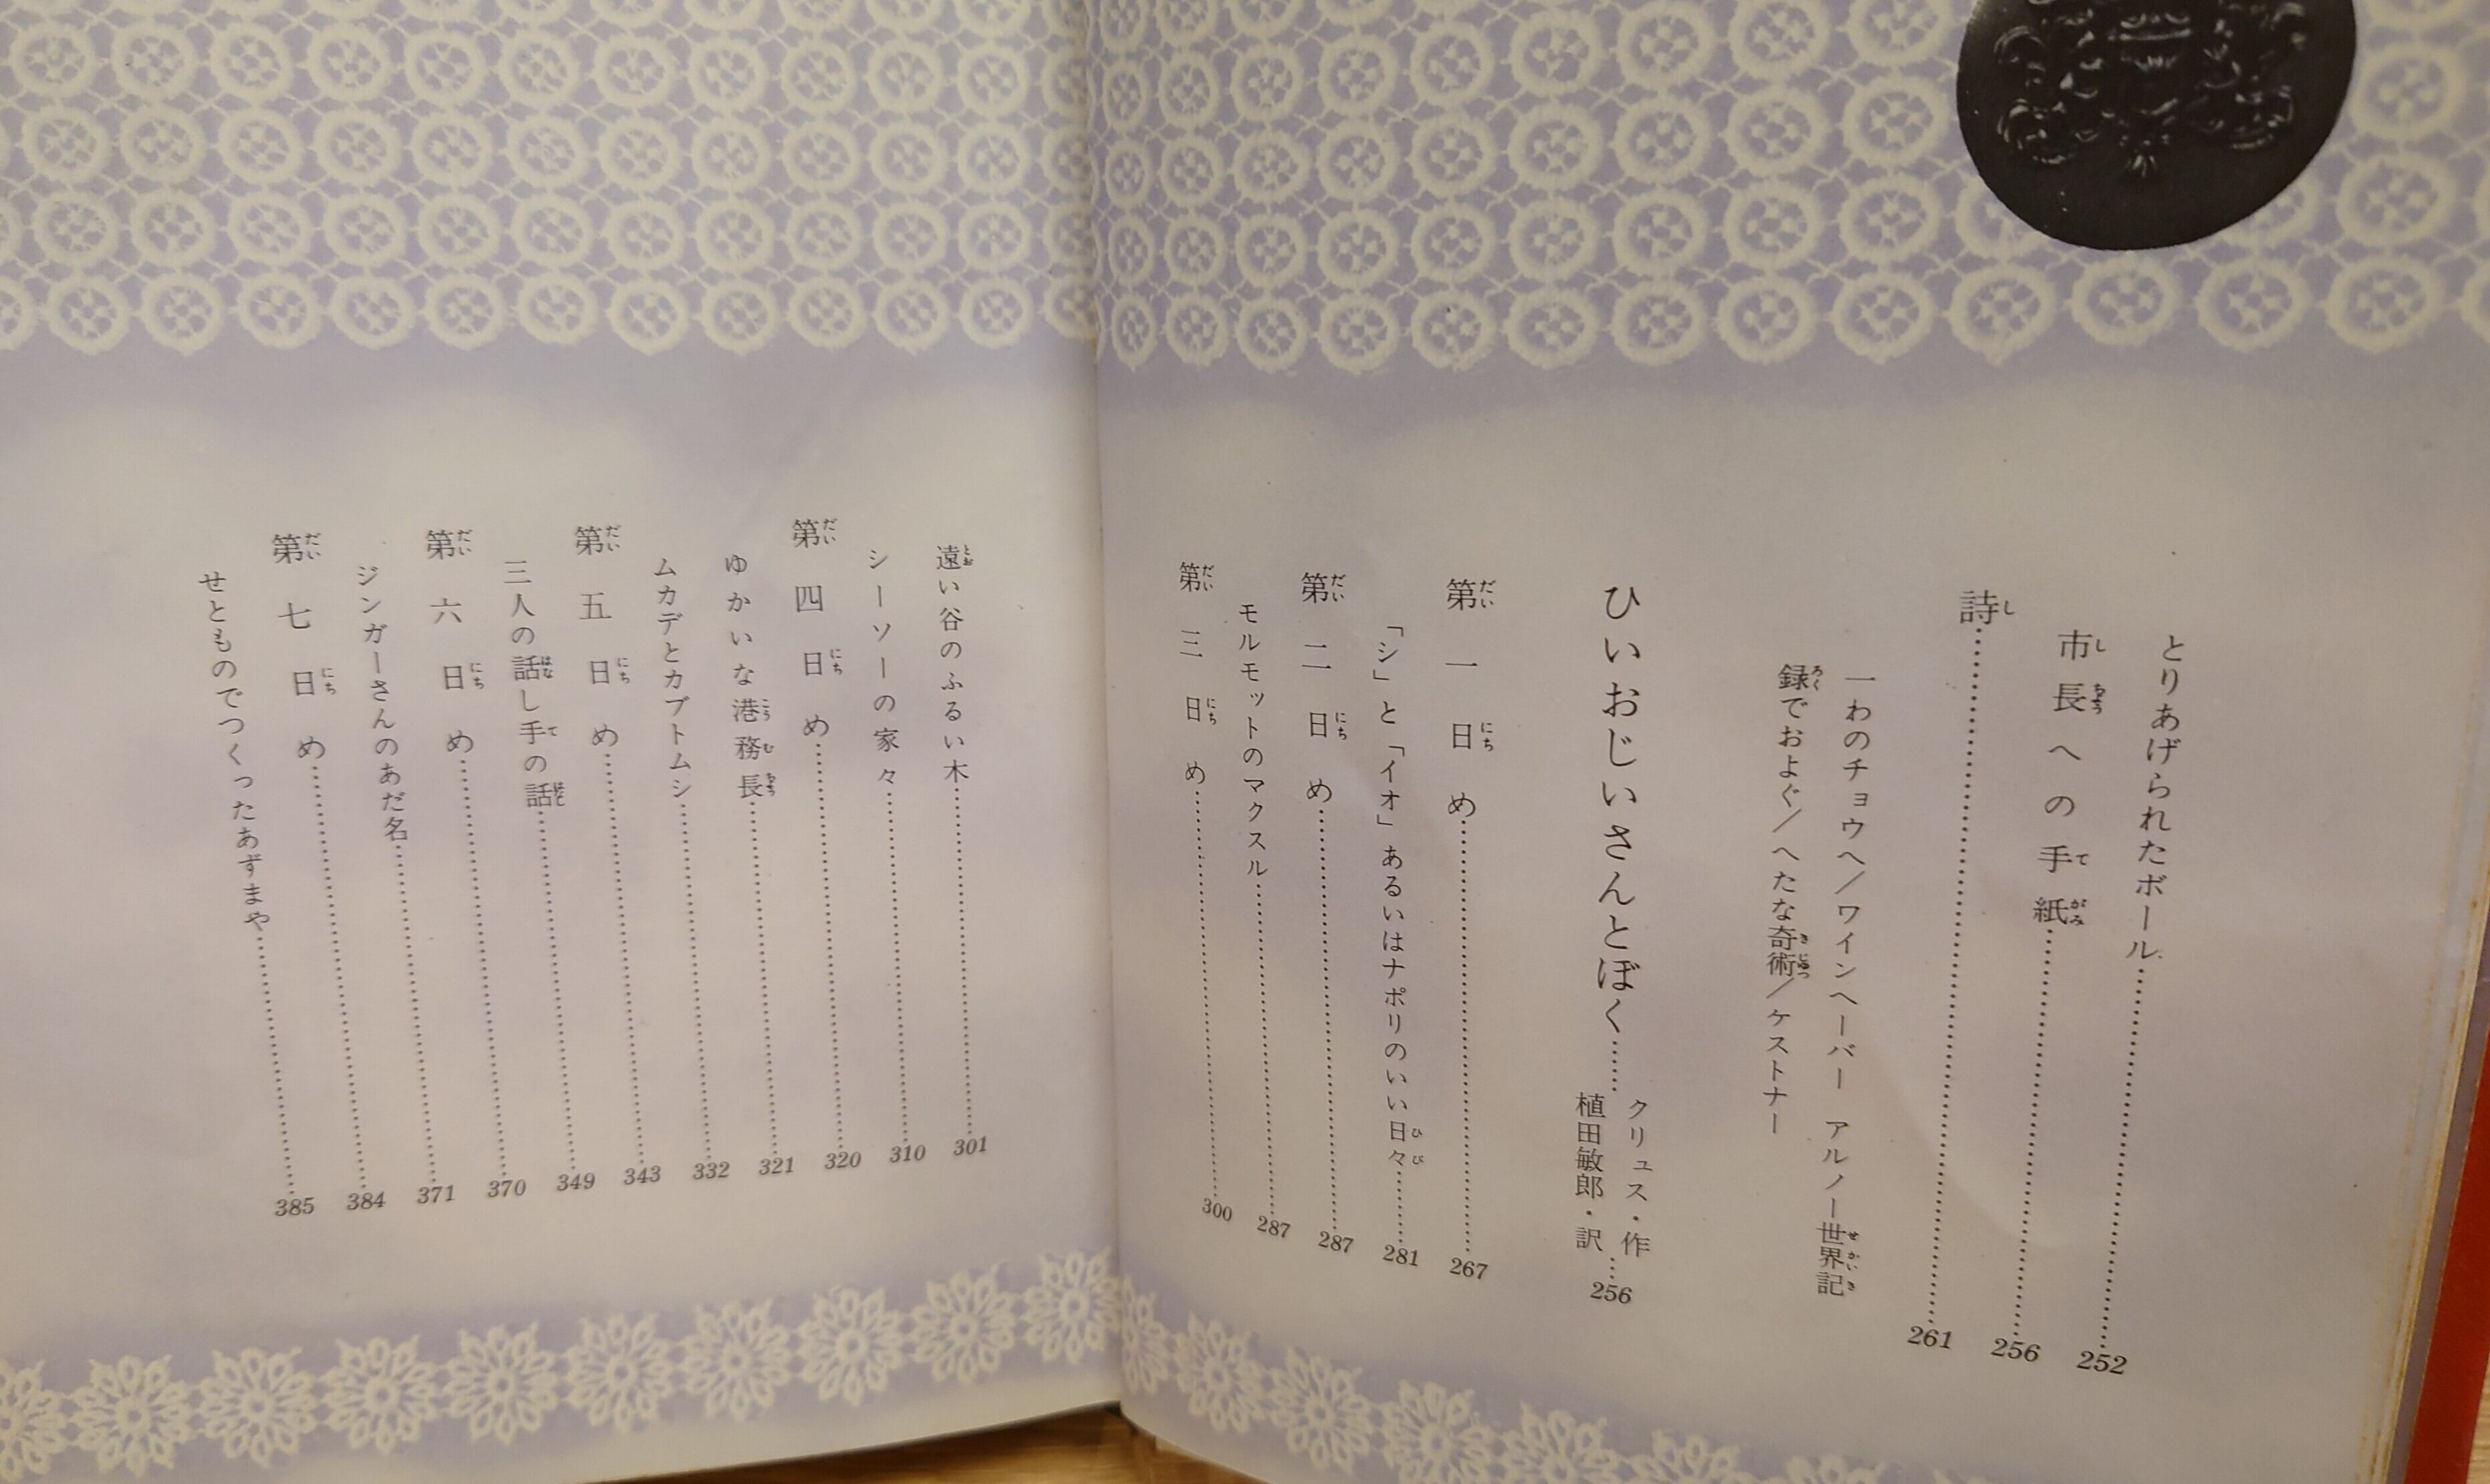 とりあげられたボール……252
市長への手紙……256
詩……261
一わのチョウへ/ワインヘーバー アルノー世界記
録でおよぐ/へたな奇術/ケストナー
ひいおじいさんとぼく……クリュス・作
植田敏郎・訳……256
第一日め……267
「シ」と「イオ」あるいはナポリのいい日々……281
第二日め……287
モルモットのマクスル……287
第三日め……300
遠い谷のふるい木……301
シーソーの家々……310
第四日め……320
ゆかいな港務長……321
ムカデとカブトムシ……332
第五日め……343
三人の話し手の話……349
第六日め……370
ジンガーさんのあだ名……371
第七日め……384
せとものでつくったあずまや……385